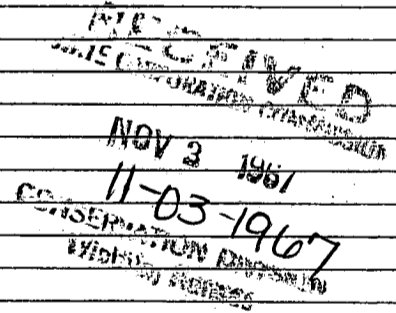 RECEIVED
STATE CORPORATION COMMISSION
NOV 3 1967
11-03-1967
CONSERVATION DIVISION
Wichita, Kansas